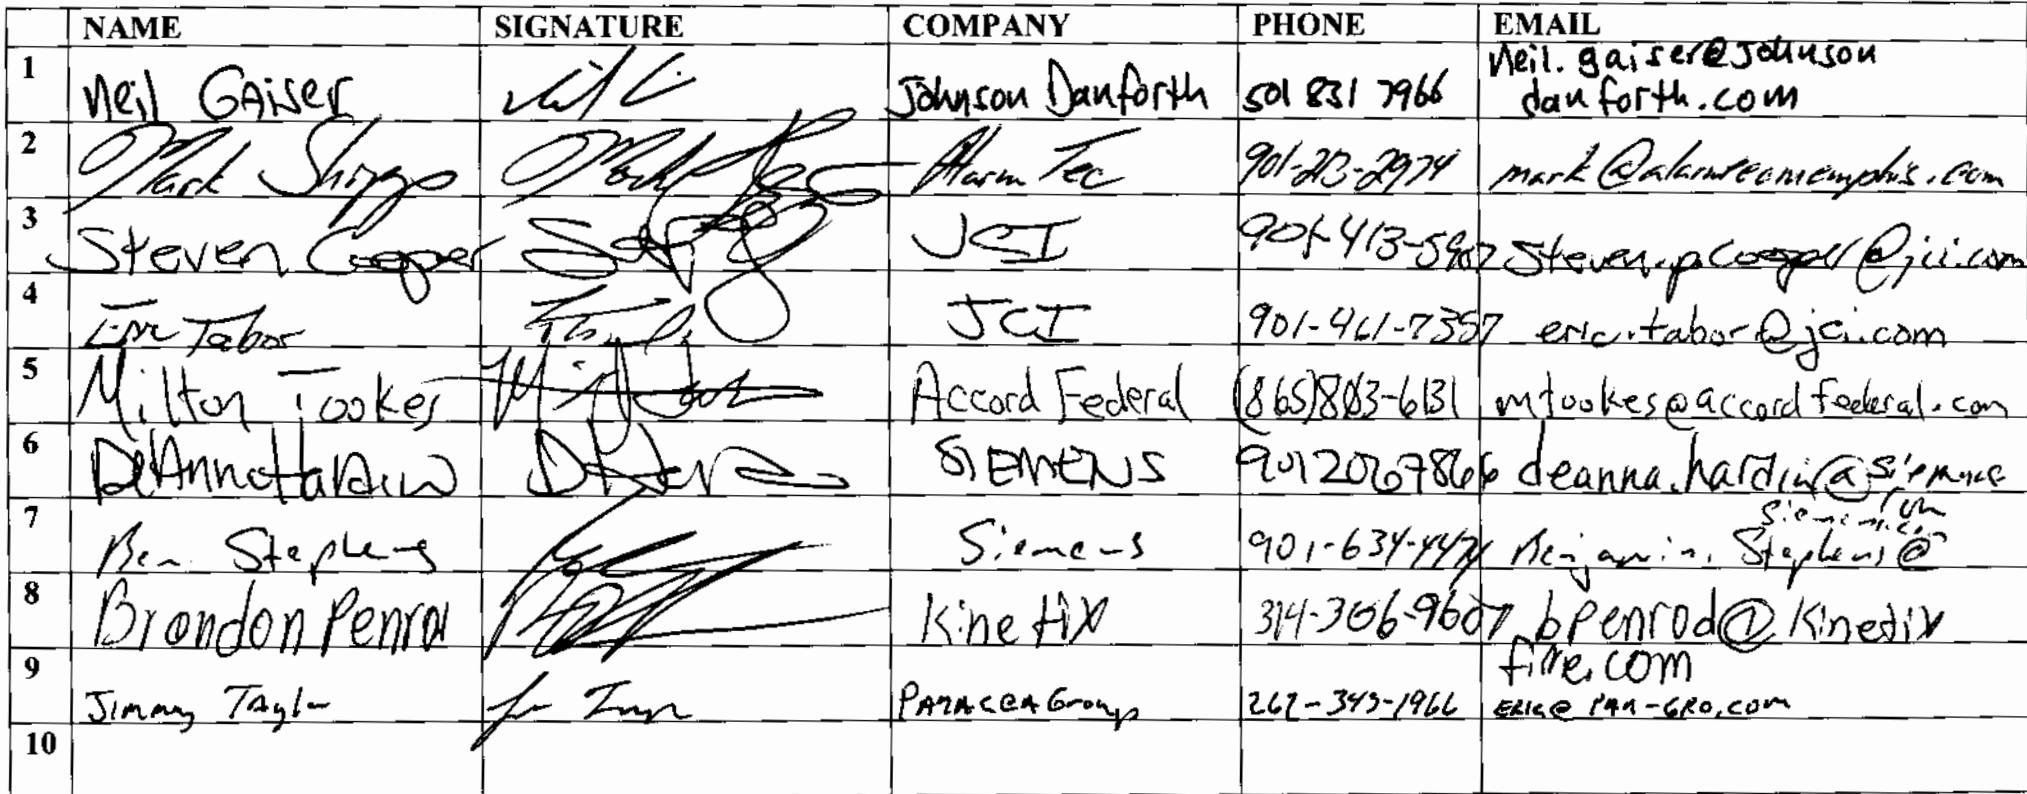 NAME SIGNATURE COMPANY PHONE EMAIL
1 Neil Gaiser Johnson Danforth 501 831 7966 neil.gaiser@johnson
danforth.com
2 Mark Shipp Alarm Tec 901-213-2974 mark@alarmtecmemphis.com
3 Steven Cooper JSI 901-413-5907 Steven.p.cooper@jci.com
4 Eric Tabor JCI 901-461-7357 eric.tabor@jci.com
5 Milton Tookes Accord Federal (865)803-6131 mtookes@accordfederal.com
6 DeAnna Hardin SIEMENS 901 206 7866 deanna.hardin@siemens
.com
7 Ben Stephens Siemens 901-634-4474 Benjamin.Stephens@
siemens.com
8 Brandon Penrod Kinetix 314-306-9607 bpenrod@kinetix
fire.com
9 Jimmy Taylor PANACEA Group 262-343-1966 ERIC@PAN-GRO.COM
10